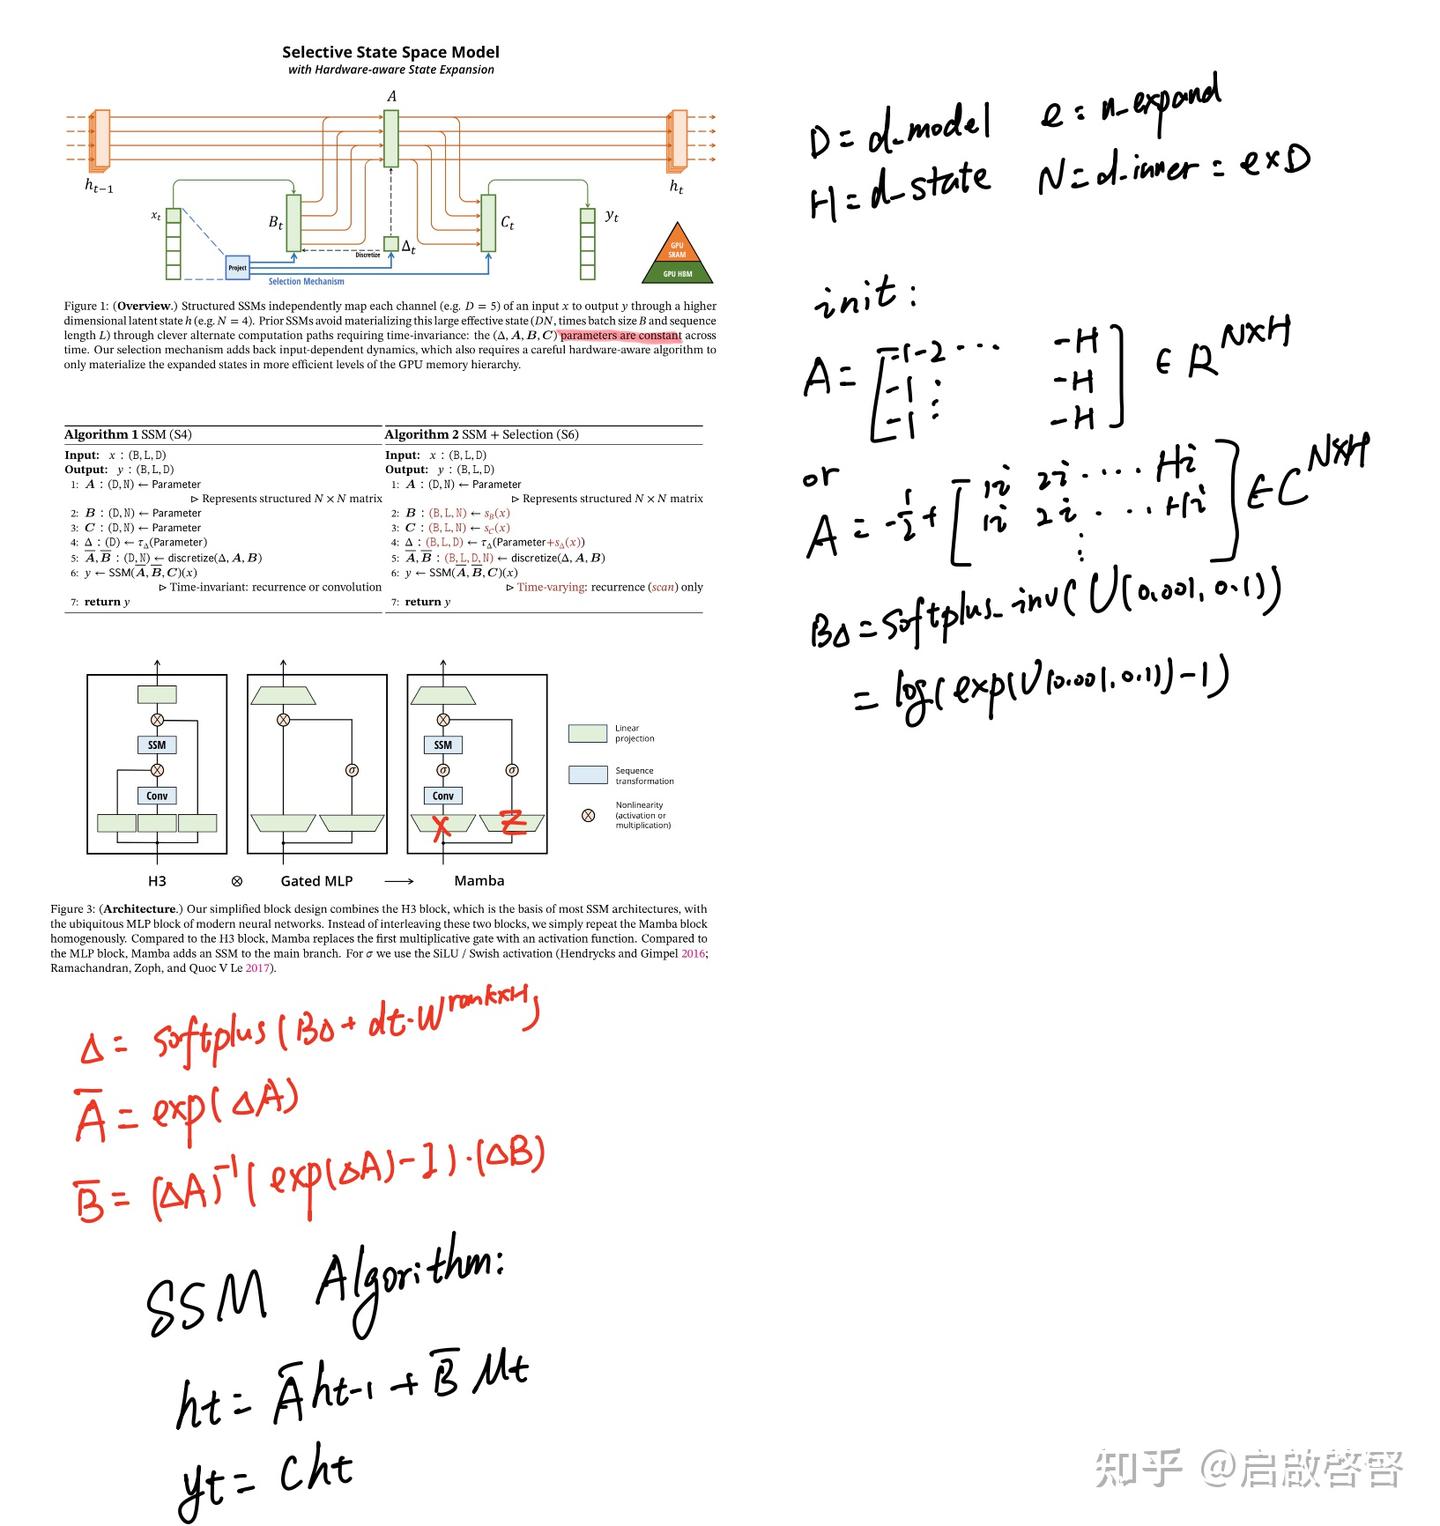 Selective State Space Model
with Hardware-aware State Expansion
A
h_{t-1}
h_t
x_t
B_t
C_t
y_t
Δ_t
Discretize
Project
Selection Mechanism
GPU
SRAM
GPU HBM
Figure 1: (Overview.) Structured SSMs independently map each channel (e.g. D = 5) of an input x to output y through a higher
dimensional latent state h (e.g. N = 4). Prior SSMs avoid materializing this large effective state (DN, times batch size B and sequence
length L) through clever alternate computation paths requiring time-invariance: the (Δ, A, B, C) parameters are constant across
time. Our selection mechanism adds back input-dependent dynamics, which also requires a careful hardware-aware algorithm to
only materialize the expanded states in more efficient levels of the GPU memory hierarchy.
Algorithm 1 SSM (S4)
Input: x : (B, L, D)
Output: y : (B, L, D)
1: A : (D, N) ← Parameter
▷ Represents structured N × N matrix
2: B : (D, N) ← Parameter
3: C : (D, N) ← Parameter
4: Δ : (D) ← τ_Δ(Parameter)
5: A̅, B̅ : (D, N) ← discretize(Δ, A, B)
6: y ← SSM(A̅, B̅, C)(x)
▷ Time-invariant: recurrence or convolution
7: return y
Algorithm 2 SSM + Selection (S6)
Input: x : (B, L, D)
Output: y : (B, L, D)
1: A : (D, N) ← Parameter
▷ Represents structured N × N matrix
2: B : (B, L, N) ← s_B(x)
3: C : (B, L, N) ← s_C(x)
4: Δ : (B, L, D) ← τ_Δ(Parameter+s_Δ(x))
5: A̅, B̅ : (B, L, D, N) ← discretize(Δ, A, B)
6: y ← SSM(A̅, B̅, C)(x)
▷ Time-varying: recurrence (scan) only
7: return y
SSM
Conv
σ
SSM
σ
σ
Conv
X
Z
Linear
projection
Sequence
transformation
Nonlinearity
(activation or
multiplication)
H3 ⊗ Gated MLP → Mamba
Figure 3: (Architecture.) Our simplified block design combines the H3 block, which is the basis of most SSM architectures, with
the ubiquitous MLP block of modern neural networks. Instead of interleaving these two blocks, we simply repeat the Mamba block
homogenously. Compared to the H3 block, Mamba replaces the first multiplicative gate with an activation function. Compared to
the MLP block, Mamba adds an SSM to the main branch. For σ we use the SiLU / Swish activation (Hendrycks and Gimpel 2016;
Ramachandran, Zoph, and Quoc V Le 2017).
Δ = softplus(BΔ + dt·W^{rank×H})
A̅ = exp(ΔA)
B̅ = (ΔA)^{-1}(exp(ΔA)-I)·(ΔB)
SSM Algorithm:
ht = A̅ ht-1 + B̅ μt
yt = Cht
D = d_model e = n_expand
H = d_state N = d_inner = e×D
init:
A = [-1 -2 ... -H
-1 ⋮ -H
-1 ⋮ -H] ∈ R^{N×H}
or
A = -1/2 + [1i 2i .... Hi
1i 2i ... Hi
⋮] ∈ C^{N×H}
BΔ = softplus_inv(U(0.001, 0.1))
= log(exp(U(0.001, 0.1))-1)
知乎 @启啟啓晵